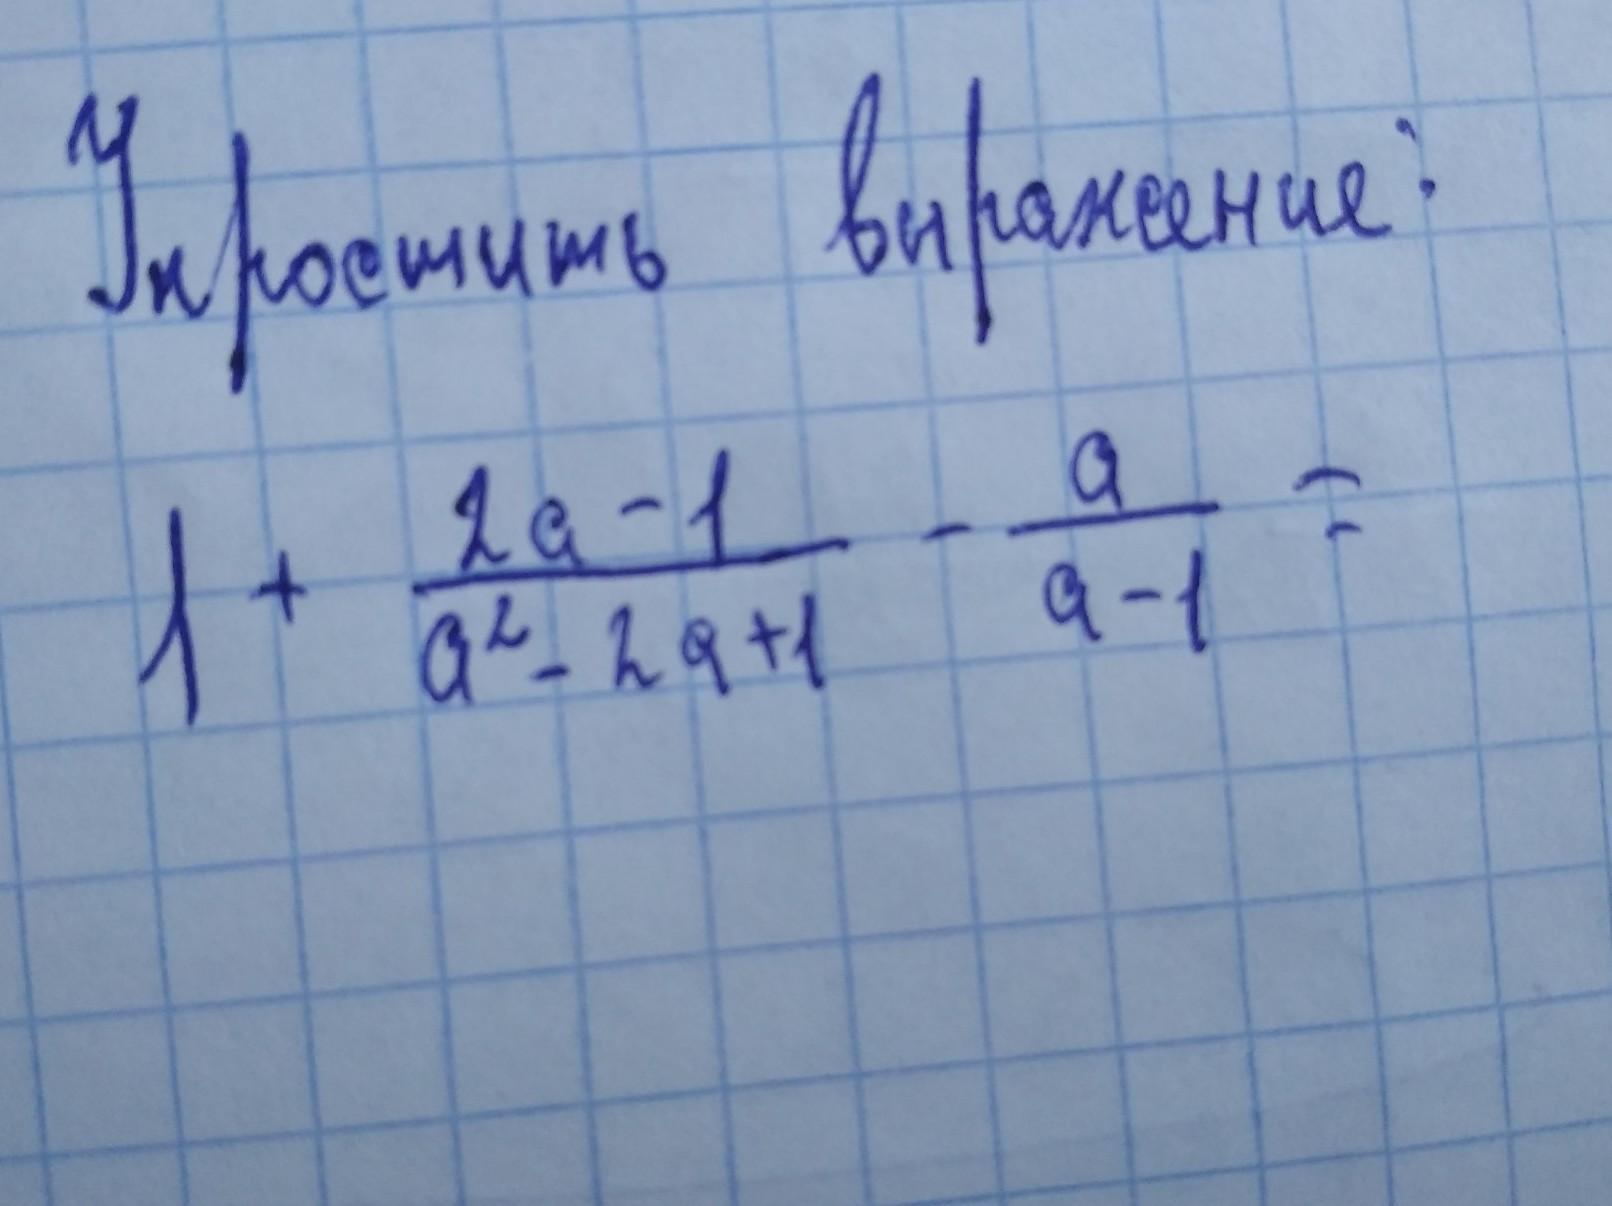 Упростить выражение:
1 + \frac{2a - 1}{a^2 - 2a + 1} - \frac{a}{a - 1} =